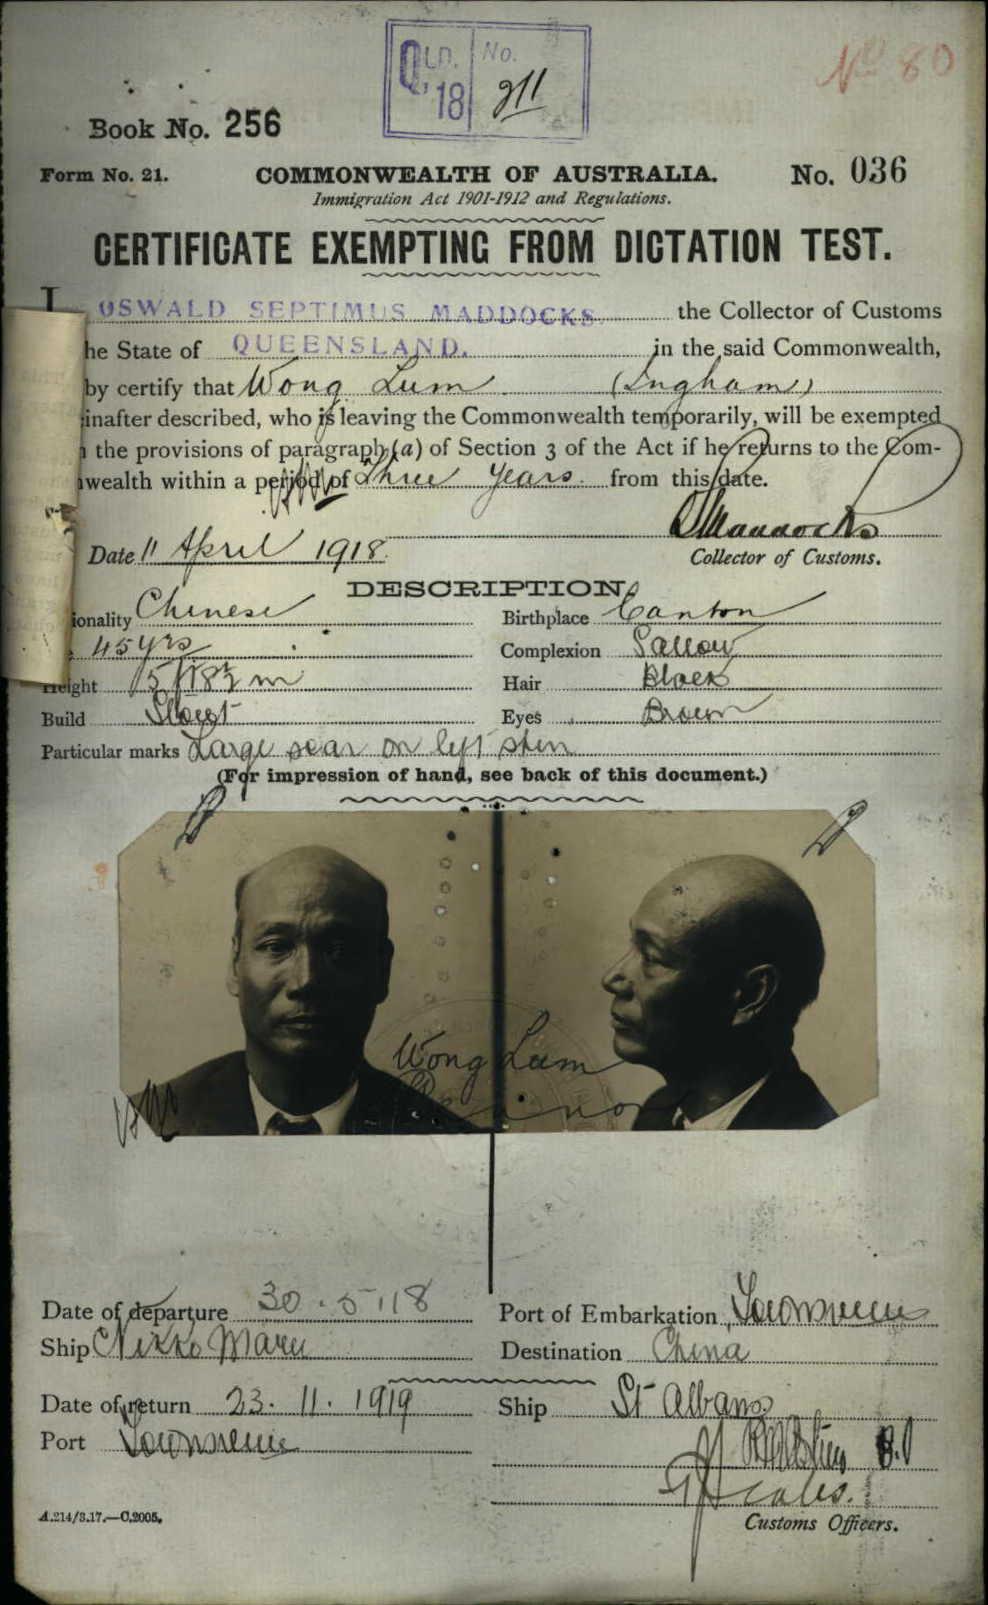 QLD. No.
18 211
No 80
Book No. 256
Form No. 21. COMMONWEALTH OF AUSTRALIA. No. 036
Immigration Act 1901-1912 and Regulations.
CERTIFICATE EXEMPTING FROM DICTATION TEST.
I OSWALD SEPTIMUS MADDOCKS the Collector of Customs
he State of QUEENSLAND. in the said Commonwealth,
by certify that Wong Lum (Ingham)
inafter described, who is leaving the Commonwealth temporarily, will be exempted
the provisions of paragraph (a) of Section 3 of the Act if he returns to the Com-
wealth within a period of Three Years from this date.
OSMaddocks
Date 11 April 1918. Collector of Customs.
DESCRIPTION
ionality Chinese Birthplace Canton
45 yrs Complexion Sallow
Height Hair Black
Build Stout Eyes Brown
Particular marks Large scar on left shin
(For impression of hand, see back of this document.)
Wong Lum
Date of departure 30.5.18 Port of Embarkation Townsville
Ship Nikko Maru Destination China
Date of return 23.11.1919 Ship St Albans
Port Townsville
A.214/3.17.—C.2005. Customs Officers.